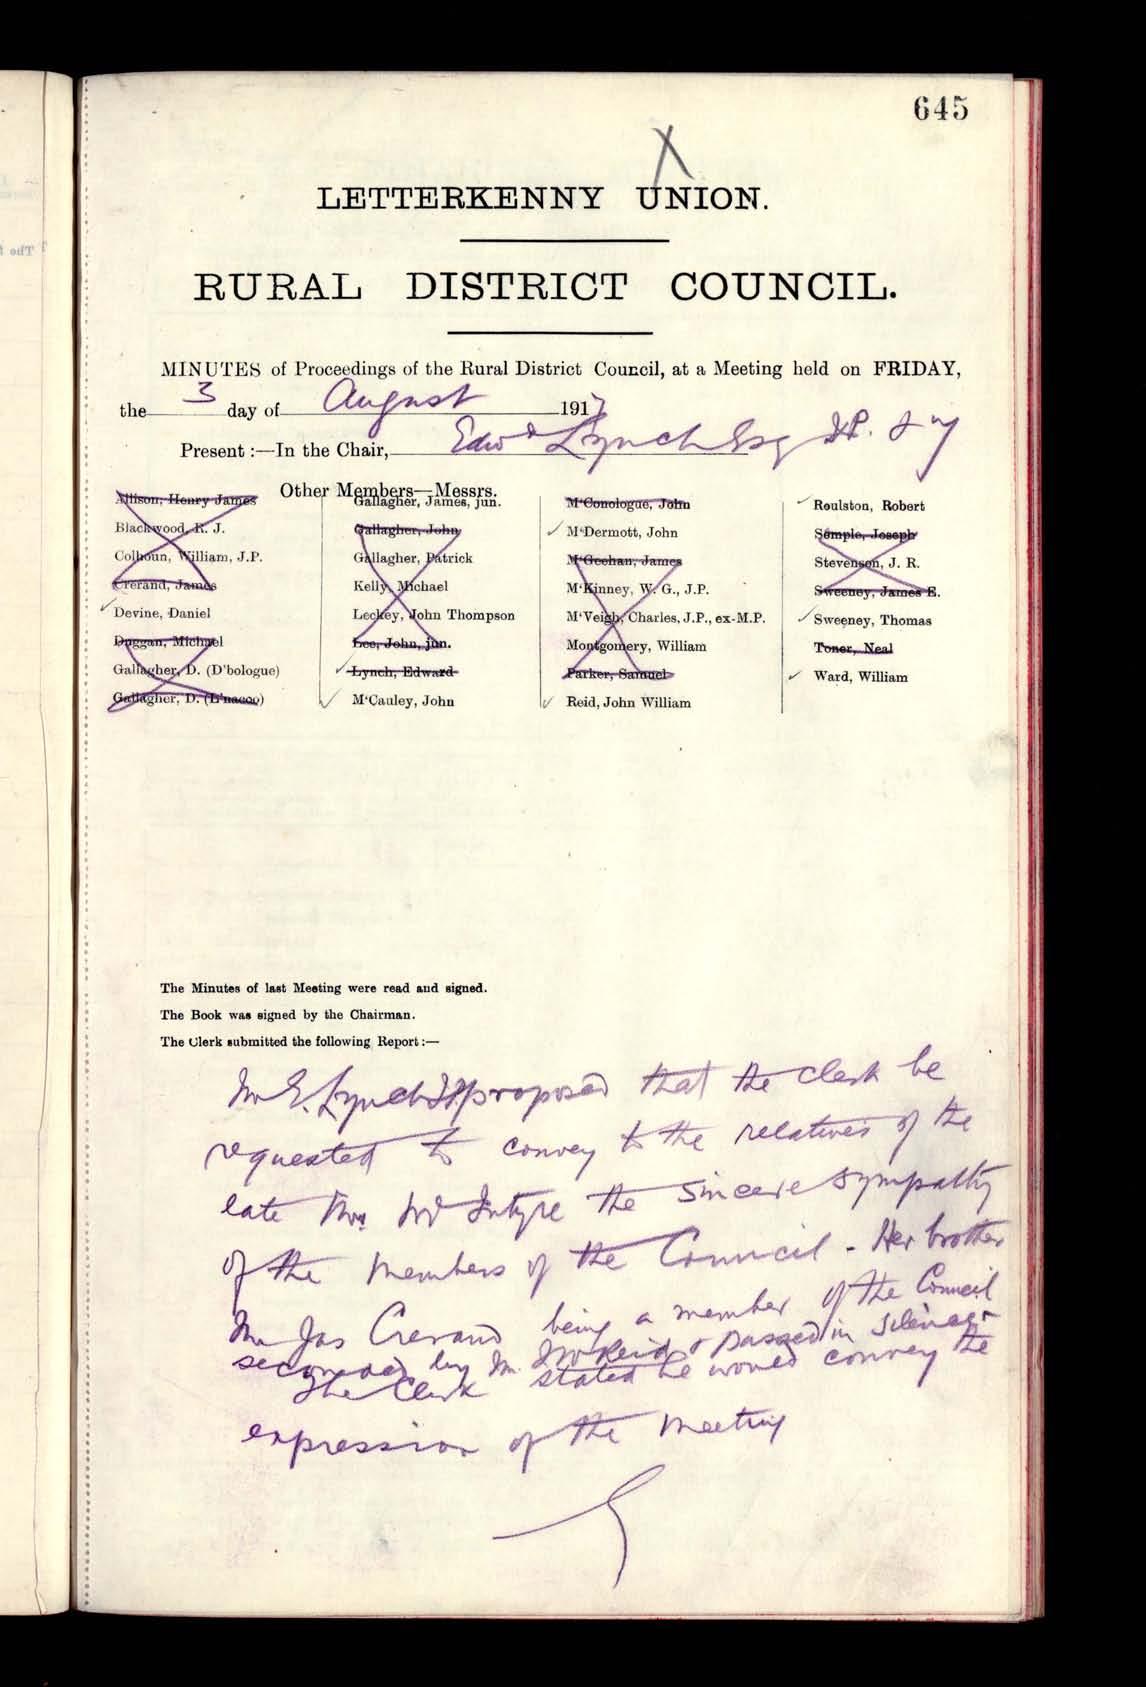 645
LETTERKENNY UNION.
RURAL DISTRICT COUNCIL.
MINUTES of Proceedings of the Rural District Council, at a Meeting held on FRIDAY,
the 3 day of August 1917
Present :—In the Chair, Edwd Lynch Esq J.P.
Other Members—Messrs.
Allison, Henry James
Blackwood, R. J.
Colhoun, William, J.P.
Crerand, James
Devine, Daniel
Duggan, Michael
Gallagher, D. (D'bologue)
Gallagher, D. (L'nacoo)
Gallagher, James, jun.
Gallagher, John
Gallagher, Patrick
Kelly, Michael
Leckey, John Thompson
Lee, John, jun.
Lynch, Edward
M'Cauley, John
M'Conologue, John
M'Dermott, John
M'Geehan, James
M'Kinney, W. G., J.P.
M'Veigh, Charles, J.P., ex-M.P.
Montgomery, William
Parker, Samuel
Reid, John William
Roulston, Robert
Semple, Joseph
Stevenson, J. R.
Sweeney, James E.
Sweeney, Thomas
Toner, Neal
Ward, William
The Minutes of last Meeting were read and signed.
The Book was signed by the Chairman.
The Clerk submitted the following Report :—
Mr E. Lynch JP proposed that the clerk be
requested to convey to the relatives of the
late Mrs McIntyre the sincere sympathy
of the members of the Council - Her brother
Mr Jas Crerand being a member of the Council
seconded by Mr. Jno Reid & passed in silence
The Clerk stated he would convey the
expression of the meeting